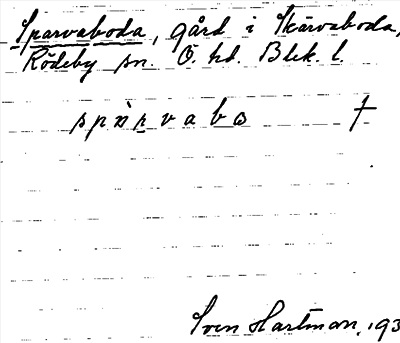 Sparvaboda, gård i Skärvaboda,
Rödeby sn. Ö. hd. Blek. l.
spàrvabo †
Sven Hartman, 193